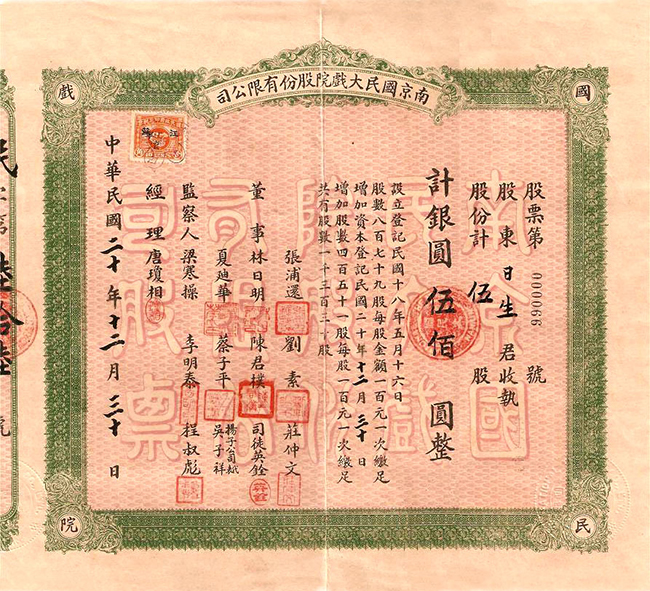 南京國民大戲院股份有限公司
國
民
戲
院
股票第 000066 號
股東 日生 君收執
股份計 伍 股
計銀圓 伍佰 圓整
設立登記民國十八年五月十六日
股數八百七十九股每股金額一百元一次繳足
增加資本登記民國二十年十二月三十日
增加股數四百五十一股每股一百元一次繳足
共有股數一千三百三十股
董事 張浦還 劉素 莊仲文
林日明 陳君樸 司徒英銓
夏迪華 蔡子平 揚子公司代表 吳子祥
監察人 梁寒操 李明泰 程叔彪
經理 唐瓊相
中華民國二十年十二月三十日
南京國民大戲院有限公司股票
江蘇
民
字第
陸拾陸
號